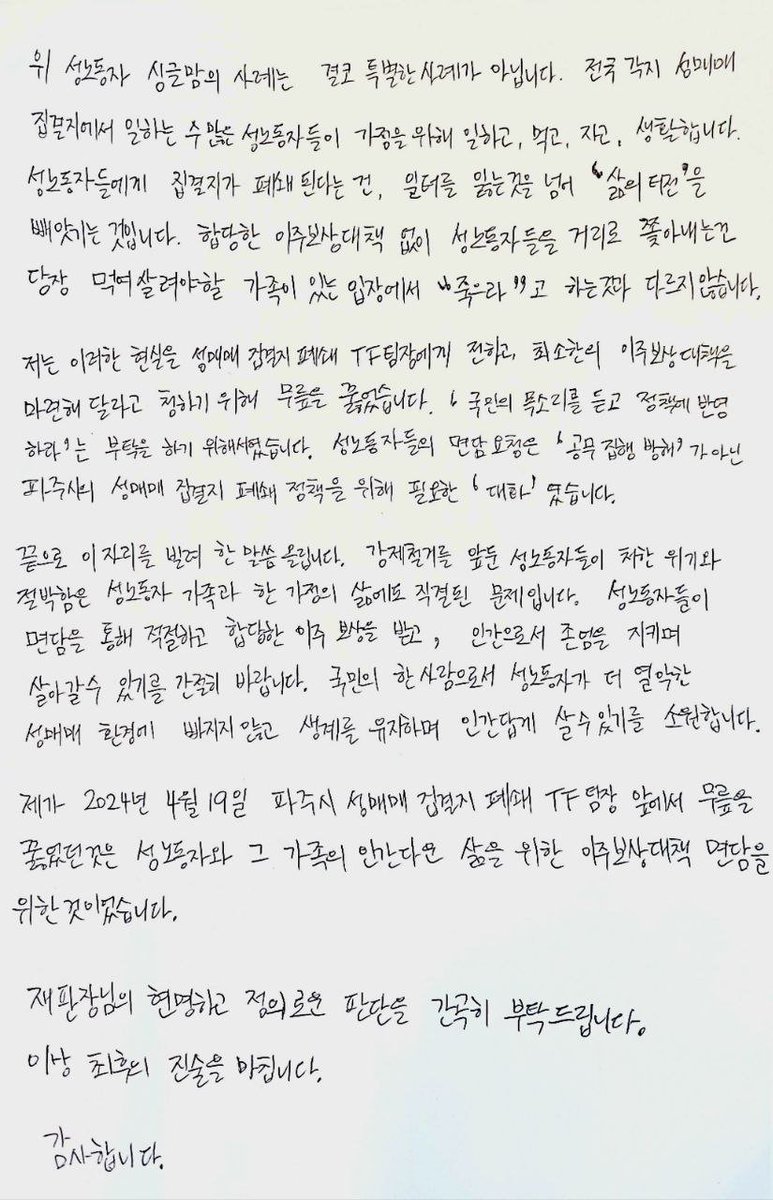 위 성노동자 싱글맘의 사례는 결코 특별한 사례가 아닙니다. 전국 각지 성매매
집결지에서 일하는 수많은 성노동자들이 가정을 위해 일하고, 먹고, 자고, 생활합니다.
성노동자들에게 집결지가 폐쇄된다는 건, 일터를 잃는것을 넘어 '삶의 터전'을
빼앗기는 것입니다. 합당한 이주보상대책 없이 성노동자들을 거리로 쫓아내는건
당장 먹여살려야할 가족이 있는 입장에서 "죽으라"고 하는것과 다르지않습니다.
저는 이러한 현실을 성매매 집결지 폐쇄 TF팀장에게 전하고, 최소한의 이주보상대책을
마련해 달라고 청하기 위해 무릎을 꿇었습니다. '국민의 목소리를 듣고 정책에 반영
하라'는 부탁을 하기 위해서였습니다. 성노동자들의 면담요청은 '공무집행 방해'가 아닌
파주시의 성매매 집결지 폐쇄 정책을 위해 필요한 '대화'였습니다.
끝으로 이 자리를 빌려 한 말씀 올립니다. 강제철거를 앞둔 성노동자들이 처한 위기와
절박함은 성노동자 가족과 한 가정의 삶에도 직결된 문제입니다. 성노동자들이
면담을 통해 적절하고 합당한 이주 보상을 받고, 인간으로서 존엄을 지키며
살아갈수 있기를 간절히 바랍니다. 국민의 한 사람으로서 성노동자가 더 열악한
성매매 환경에 빠지지 않고 생계를 유지하며 인간답게 살 수 있기를 소원합니다.
제가 2024년 4월 19일 파주시 성매매 집결지 폐쇄 TF팀장 앞에서 무릎을
꿇었던것은 성노동자와 그 가족의 인간다운 삶을 위한 이주보상대책 면담을
위한것이었습니다.
재판장님의 현명하고 정의로운 판단을 간곡히 부탁드립니다.
이상 최후의 진술을 마칩니다.
감사합니다.